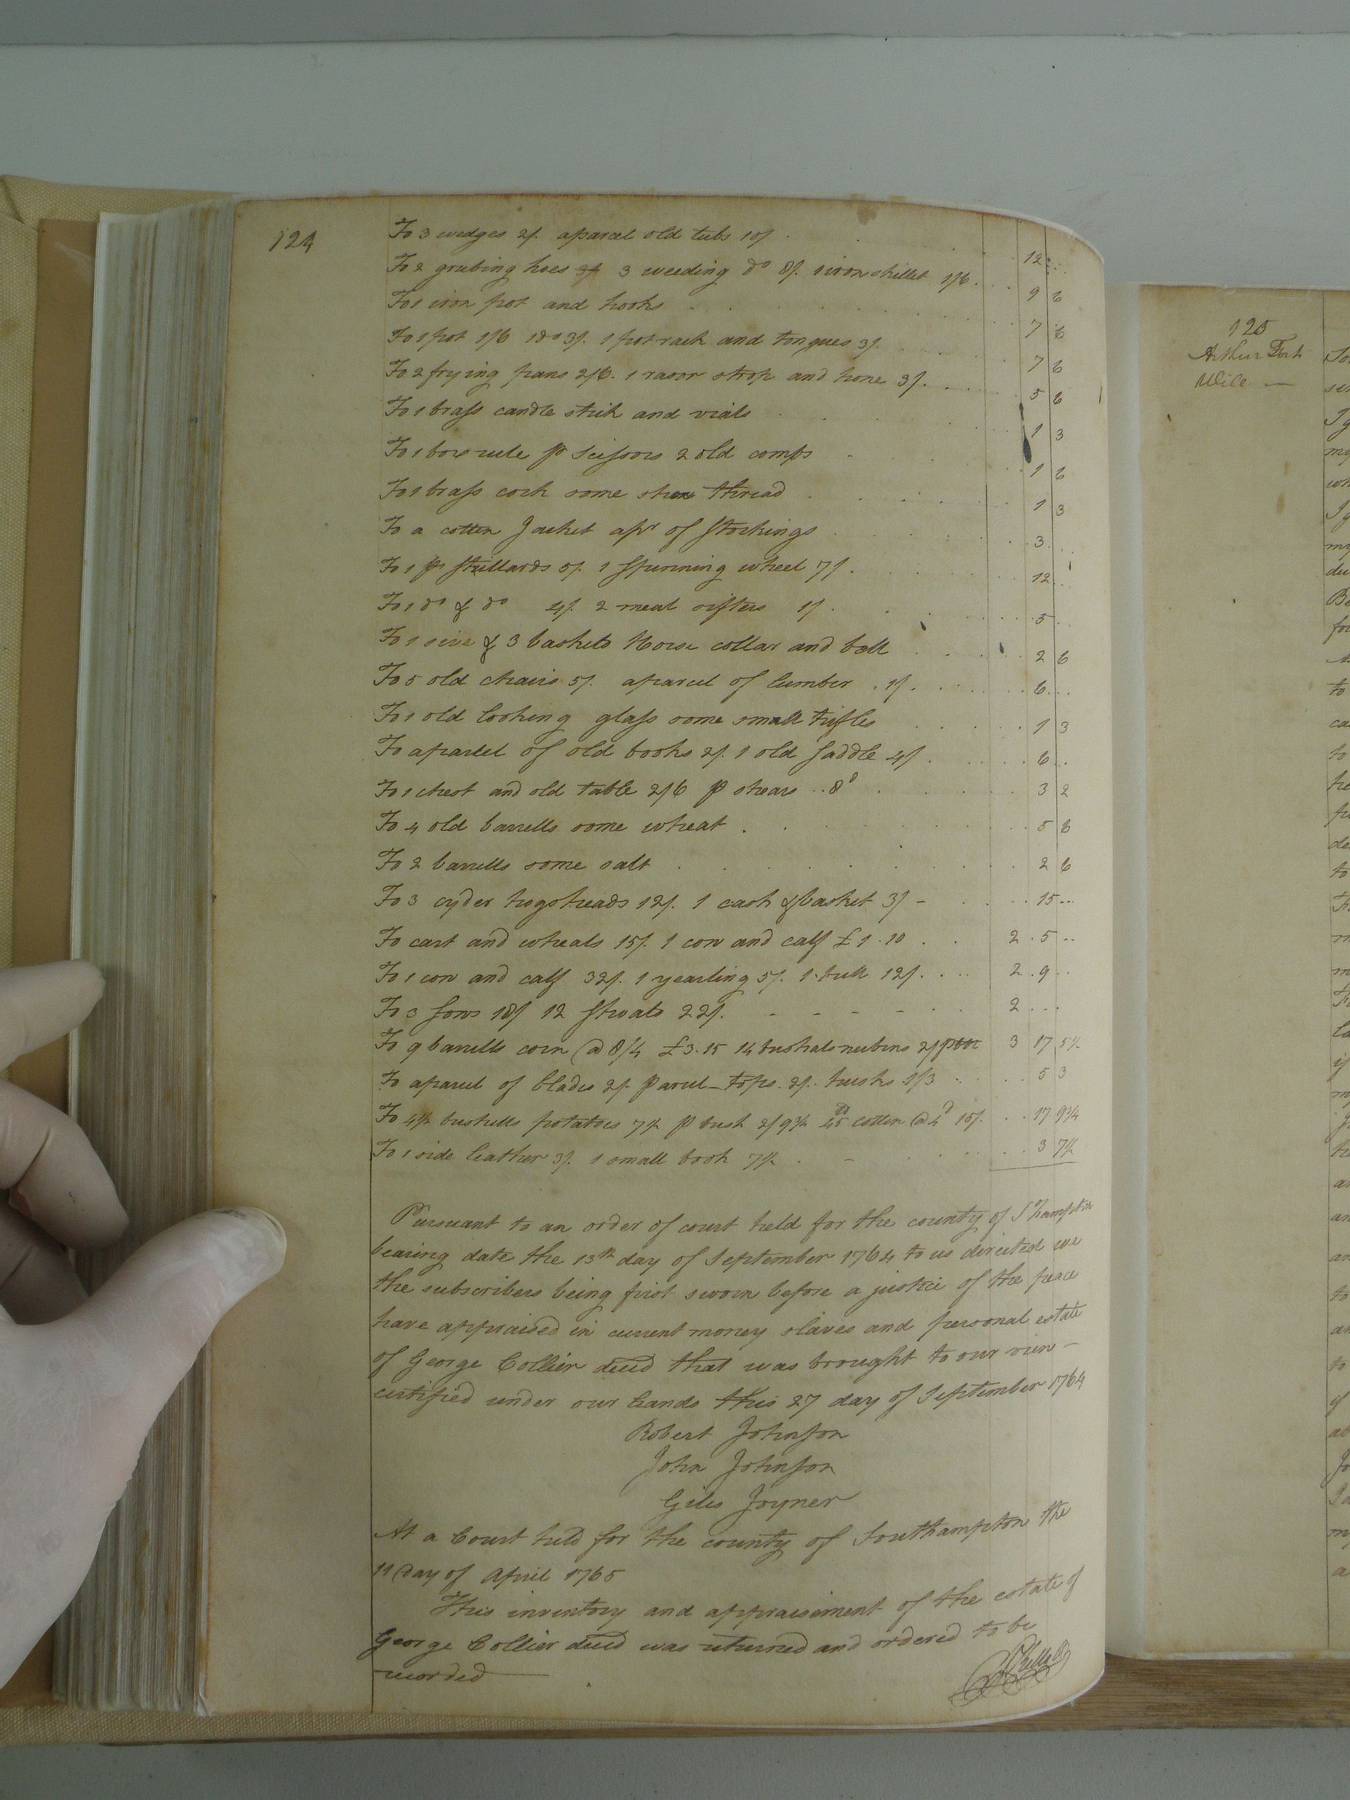 124
To 3 wedges 2/. aparcel old tubs 10/ . 12
To 2 grubing hoes 3 weeding do 8/. 1 iron skillet 1/6 . 9 6
To 1 iron pot and hooks 7 6
To 1 pot 1/6 1 do 3/. 1 pot rack and tongues 3/. 7 6
To 2 frying pans 2/6. 1 rasor strop and hone 3/. 5 6
To 1 brass candle stick and vials 1 3
To 1 box rule pr scissors 2 old comps 1 6
To 1 brass cock some shoe thread 1 3
To a cotton Jacket apr of Stockings 3
To 1 pr stillards 5/. 1 Spinning wheel 7/. 12
To 1 do & do 4/. 2 meal sifters 1/. 5
To 1 sive & 3 baskets Horse collar and bell 2 6
To 5 old chairs 5/. aparcel of lumber . 1/. 6
To 1 old looking glass some small trifles 1 3
To aparcel of old books 2/. 1 old Saddle 4/ . 6
To 1 chest and old table 2/6 pr shears .. 8d 3 2
To 4 old barrells some wheat . 5 6
To 2 barrells some salt 2 6
To 3 cyder hogsheads 12/. 1 cask & basket 3/ - 15
To cart and wheals 15/. 1 cow and calf £1.10 2 . 5
To 1 cow and calf 32/. 1 yearling 5/. 1 bull 12/. 2 . 9
To 3 Sows 18/ 12 Shoats 22/. 2
To 9 barrells corn @ 8/4 £3.15 14 bushels nubins 2/ 3 17 5½
To aparcel of blades 2/. parcel tops 2/. husks 1/3 5 3
To 4½ bushells potatoes 7½ pr bush 2/9¾ 45 lb cotton @ 4d 15/. 17 9¾
To 1 side leather 3/. 1 small book 7½ 3 7½
Pursuant to an order of court held for the county of S'hampton
bearing date the 13th day of September 1764 to us directed we
the subscribers being first sworn before a justice of the peace
have appraised in current money slaves and personal estate
of George Collier decd that was brought to our view -
certified under our hands this 27 day of September 1764
Robert Johnson
John Johnson
Giles Joyner
At a Court held for the county of Southampton the
11 day of April 1765
This inventory and appraisement of the estate of
George Collier decd was returned and ordered to be
recorded
125
Arthur Fort
Will